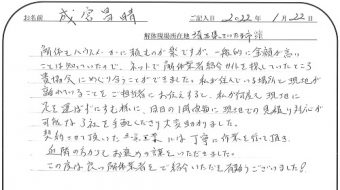 お名前 成宮昌晴 ご記入日 2022年 1月 22日
解体現場所在地 埼玉県
解体もハウスメーカーに頼むのが楽ですが、一般的に金額が高い
ことは知っていたので、ネットで解体業者紹介所を探していたところ
貴協会にめぐり会うことができました。私が住んでいる場所と現地が
離れていることをご担当者にお伝えすると、私が何度も現地に
足を運ばずにすむ様に、同日の1時間毎に現地での見積り対応が
可能な3社を手配くださり大変助かりました。
契約させて頂いた には丁寧に作業をして頂き、
近隣の方からもお褒めの言葉をいただきました。
この度は良い解体業者をご紹介いただき有難うございました!